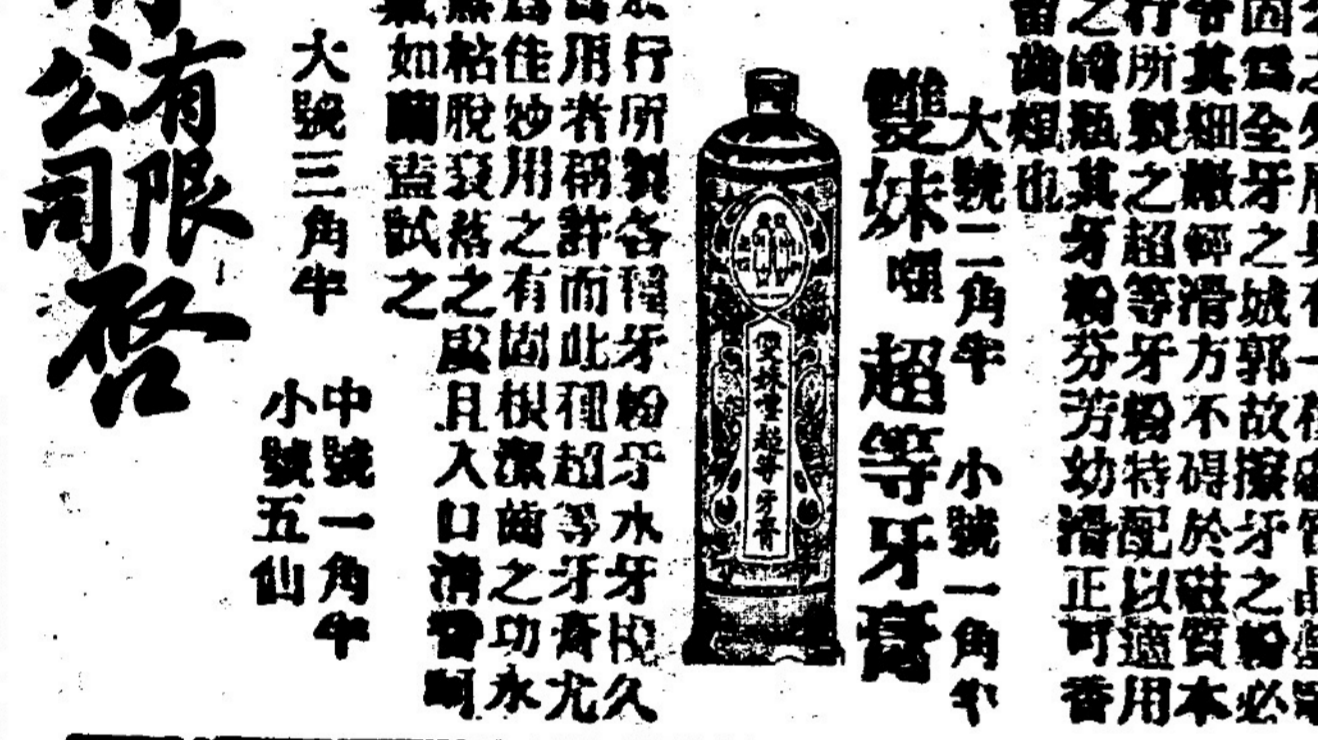 之外層具有一種
固爲全牙之城郭故擦牙之粉必
其細嫩輕滑方不碍於磁質本
行所製之超等牙粉特配以適用
之罇瓶其牙粉芬芳幼滑正可香
留齒頰也
大號二角半 小號一角半
雙妹嘜超等牙膏
雙妹嘜超等牙膏
行所製各種牙粉牙水牙梘久
爲用者稱許而此種超等牙膏尤
爲佳妙用之有固根潔齒之功永
無粘脫衰落之虞且入口清香
氣如蘭盍試之
大號三角半
中號一角半
小號五仙
有限
公司
啓